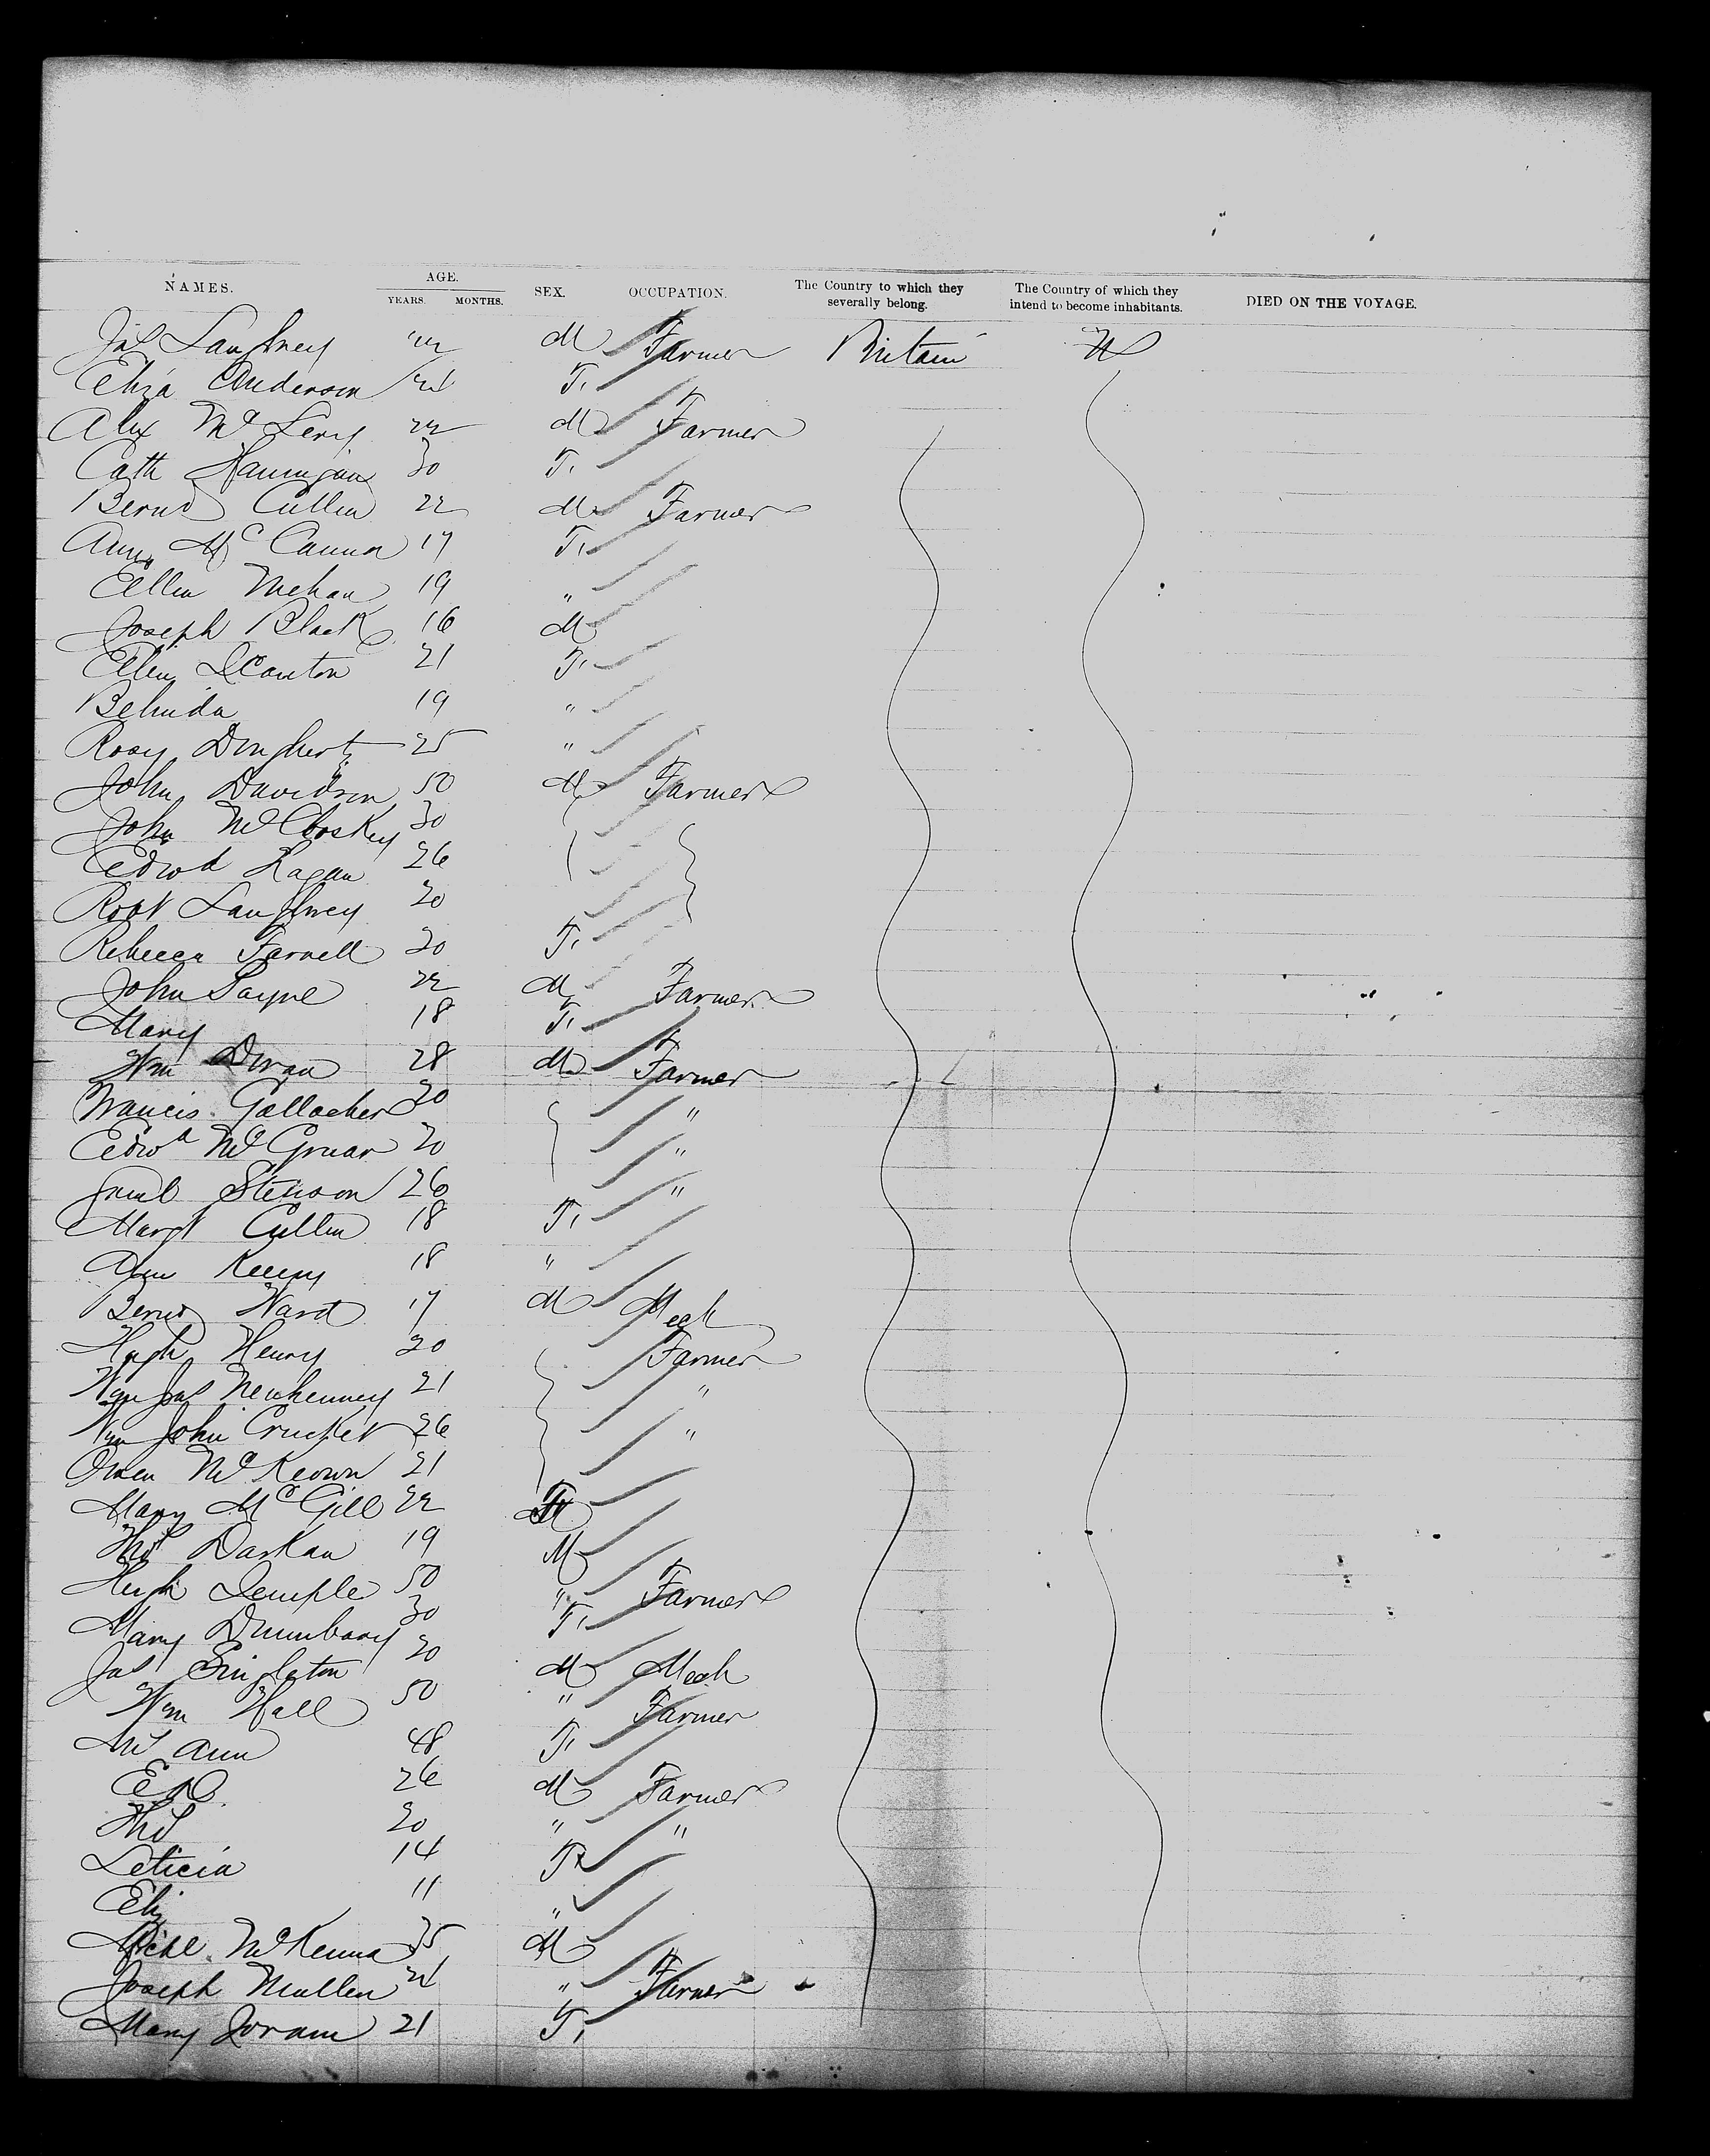 NAMES. AGE. YEARS. MONTHS. SEX. OCCUPATION. The Country to which they severally belong. The Country of which they intend to become inhabitants. DIED ON THE VOYAGE.
Jas Laughrey 22 M Farmer Britain US
Eliza Anderson 24 F.
Alex McLevy 22 M Farmer
Cath Hannigan 30 F.
Bernd Cullen 22 M Farmer
Ann McCanna 17 F.
Ellen Mehan 19 "
Joseph Black 16 M
Ellen Scanton 21 F.
Belinda 19 "
Rosy Dougherty 25 "
John Davidson 50 M Farmer
John McCloskey 30
Edwd Hagan 26
Robt Laughrey 20
Rebecca Farrell 20 F.
John Payne 22 M Farmer
Mary 18 F.
Wm Doran 28 M Farmer
Francis Gallacher 30 "
Edwd McGruar 20 "
Saml Stenson 26 "
Margt Cullen 18 F.
Ann Keeny 18 "
Bernd Ward 17 M Mech
Hugh Henry 20 Farmer
Wm Jas 21 "
Wm John 26 "
Owen McKeown 21
Mary McGill 22 F
Thos Darkan 19 M
Hugh Temple 50 " Farmer
Mary 30 F.
Jas Singleton 20 M Mech
Wm Hall 50 " Farmer
Mrs Ann 48 F.
26 M Farmer
Thos 20 " "
Leticia 14 F
Eliz 11 "
Michl McKenna 35 M
Joseph Mullen 24 " Farmer
Mary Joram 21 F.